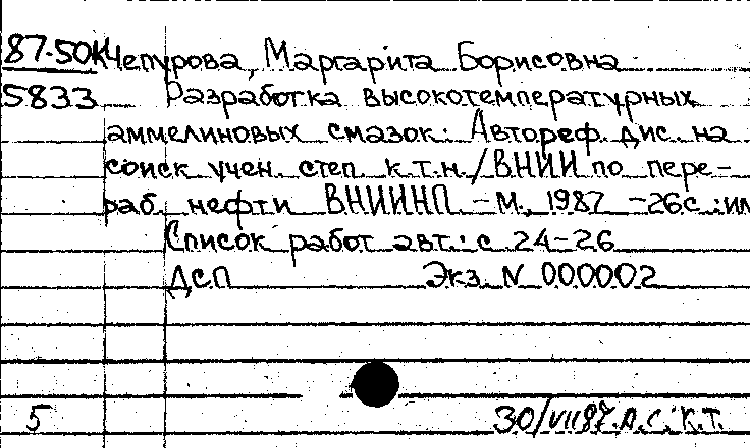 87-50К Чепурова, Маргарита Борисовна
5833 Разработка высокотемпературных
аммелиновых смазок: Автореф. дис. на
соиск. учен. степ. к.т.н./ВНИИ по пере-
раб. нефти ВНИИНП. -М., 1987 -26с.:ил
Список работ авт.: с. 24-26
ДСП Экз. N 000002
5 30/VII87. А.С. К.Т.